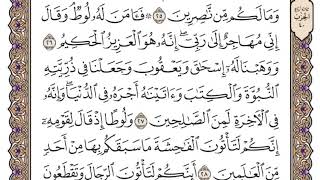 وَمَا لَكُم مِّن نَّصِرِينَ ٢٥ فَـَٔامَنَ لَهُۥ لُوطٌ وَقَالَ
إِنِّى مُهَاجِرٌ إِلَىٰ رَبِّىٓ إِنَّهُۥ هُوَ ٱلْعَزِيزُ ٱلْحَكِيمُ ٢٦
وَوَهَبْنَا لَهُۥٓ إِسْحَٰقَ وَيَعْقُوبَ وَجَعَلْنَا فِى ذُرِّيَّتِهِ
ٱلنُّبُوَّةَ وَٱلْكِتَٰبَ وَءَاتَيْنَٰهُ أَجْرَهُۥ فِى ٱلدُّنْيَا وَإِنَّهُۥ
فِى ٱلْءَاخِرَةِ لَمِنَ ٱلصَّٰلِحِينَ ٢٧ وَلُوطًا إِذْ قَالَ لِقَوْمِهِۦٓ
إِنَّكُمْ لَتَأْتُونَ ٱلْفَٰحِشَةَ مَا سَبَقَكُم بِهَا مِنْ أَحَدٍ
مِّنَ ٱلْعَٰلَمِينَ ٢٨ أَئِنَّكُمْ لَتَأْتُونَ ٱلرِّجَالَ وَتَقْطَعُونَ
الحزب
٤٠